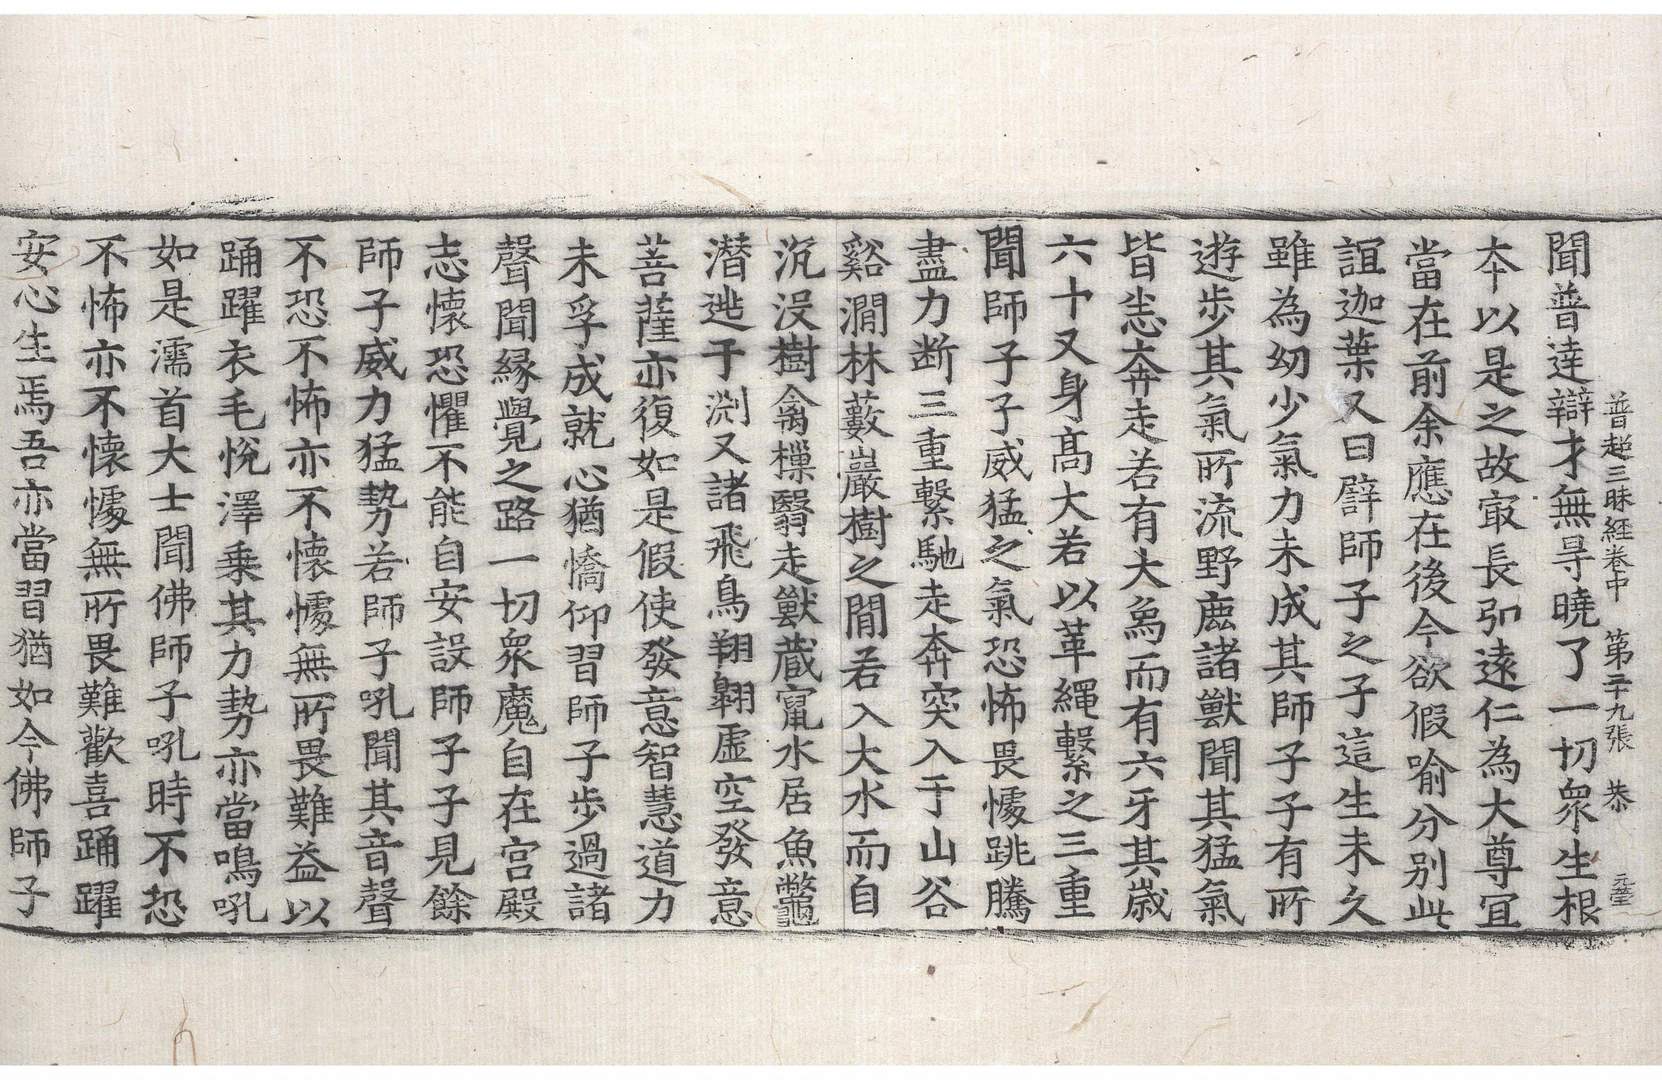 普超三昧經卷中　第二十九張　恭
聞普達辯才無㝵曉了一切衆生根
本以是之故㝡長弘遠仁為大尊宜
當在前余應在後今欲假喻分别此
誼迦葉又曰辟師子之子這生未久
雖為幼少氣力未成其師子子有所
遊步其氣所流野鹿諸獸聞其猛氣
皆悉奔走若有大象而有六牙其歲
六十又身高大若以革繩繫之三重
聞師子子威猛之氣恐怖畏懅跳騰
盡力断三重繫馳走奔突入于山谷
谿澗林藪巖樹之閒若入大水而自
沉没樹禽樔翳走獸藏竄水居魚鼈
潜逃于渕又諸飛鳥翔翱虛空發意
菩薩亦復如是假使發意智慧道力
未孚成就心猶憍仰習師子步過諸
聲聞緣覺之路一切衆魔自在宫殿
志懷恐懼不能自安設師子子見餘
師子威力猛勢若師子吼聞其音聲
不恐不怖亦不懷懅無所畏難益以
踊躍衣毛悅澤乗其力勢亦當鳴吼
如是濡首大士聞佛師子吼時不恐
不怖亦不懷懅無所畏難歡喜踊躍
安心生焉吾亦當習猶如今佛師子